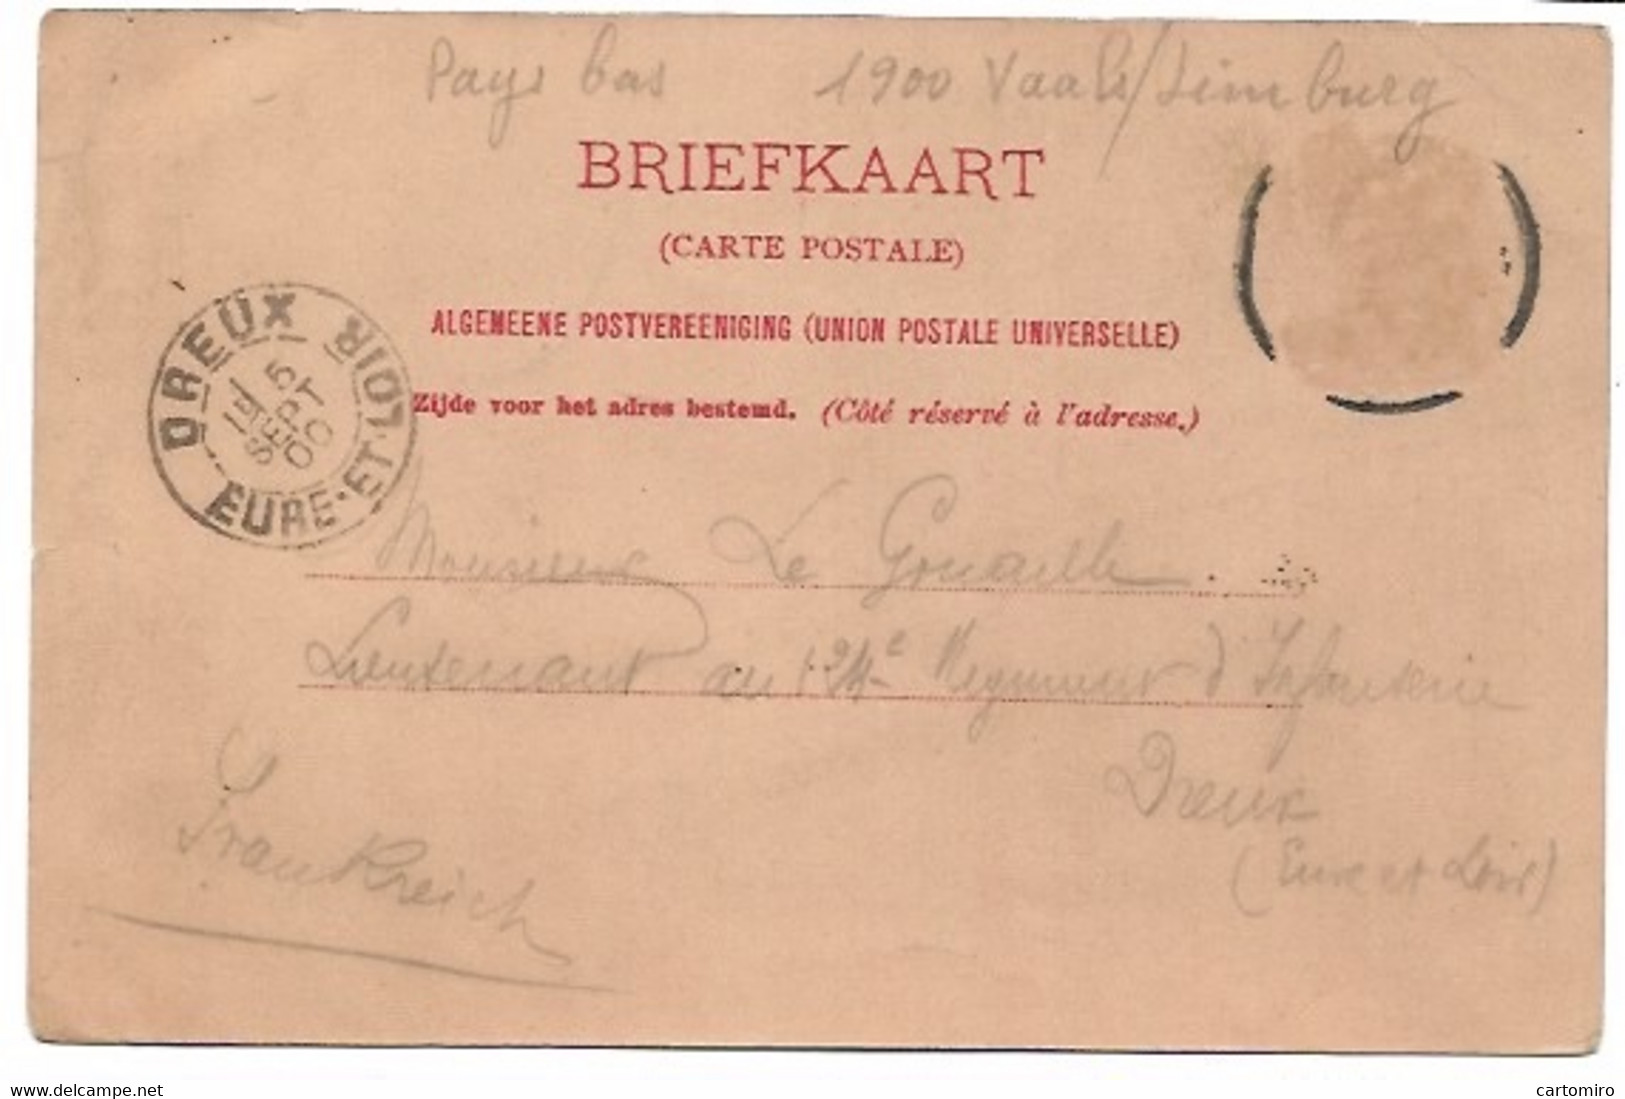 Pays bas 1900 Vaals/Limburg
BRIEFKAART
(CARTE POSTALE)
ALGEMEENE POSTVEREENIGING (UNION POSTALE UNIVERSELLE)
Zijde voor het adres bestemd. (Côté réservé à l'adresse.)
DREUX
1E/ 5
SEPT
00
EURE-ET-LOIR
Monsieur Le Gouaille
Lieutenant au 124e Regiment d'Infanterie
Dreux
(Eure et Loir)
Frankreich
delcampe.net
cartomiro